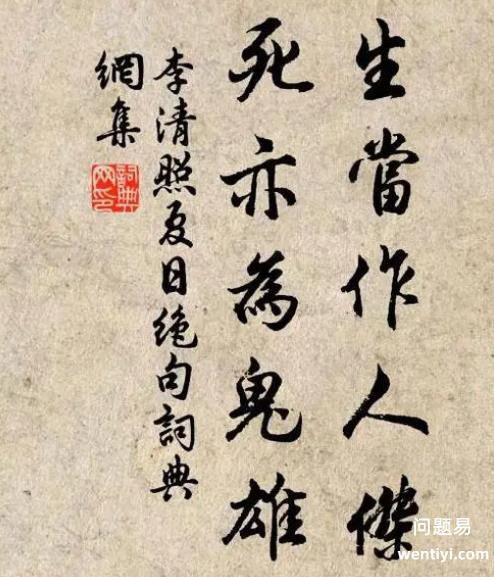 生當作人傑
死亦為鬼雄
李清照夏日絶句詞典
網集
詞典
网印
问题易
wentiyi.com